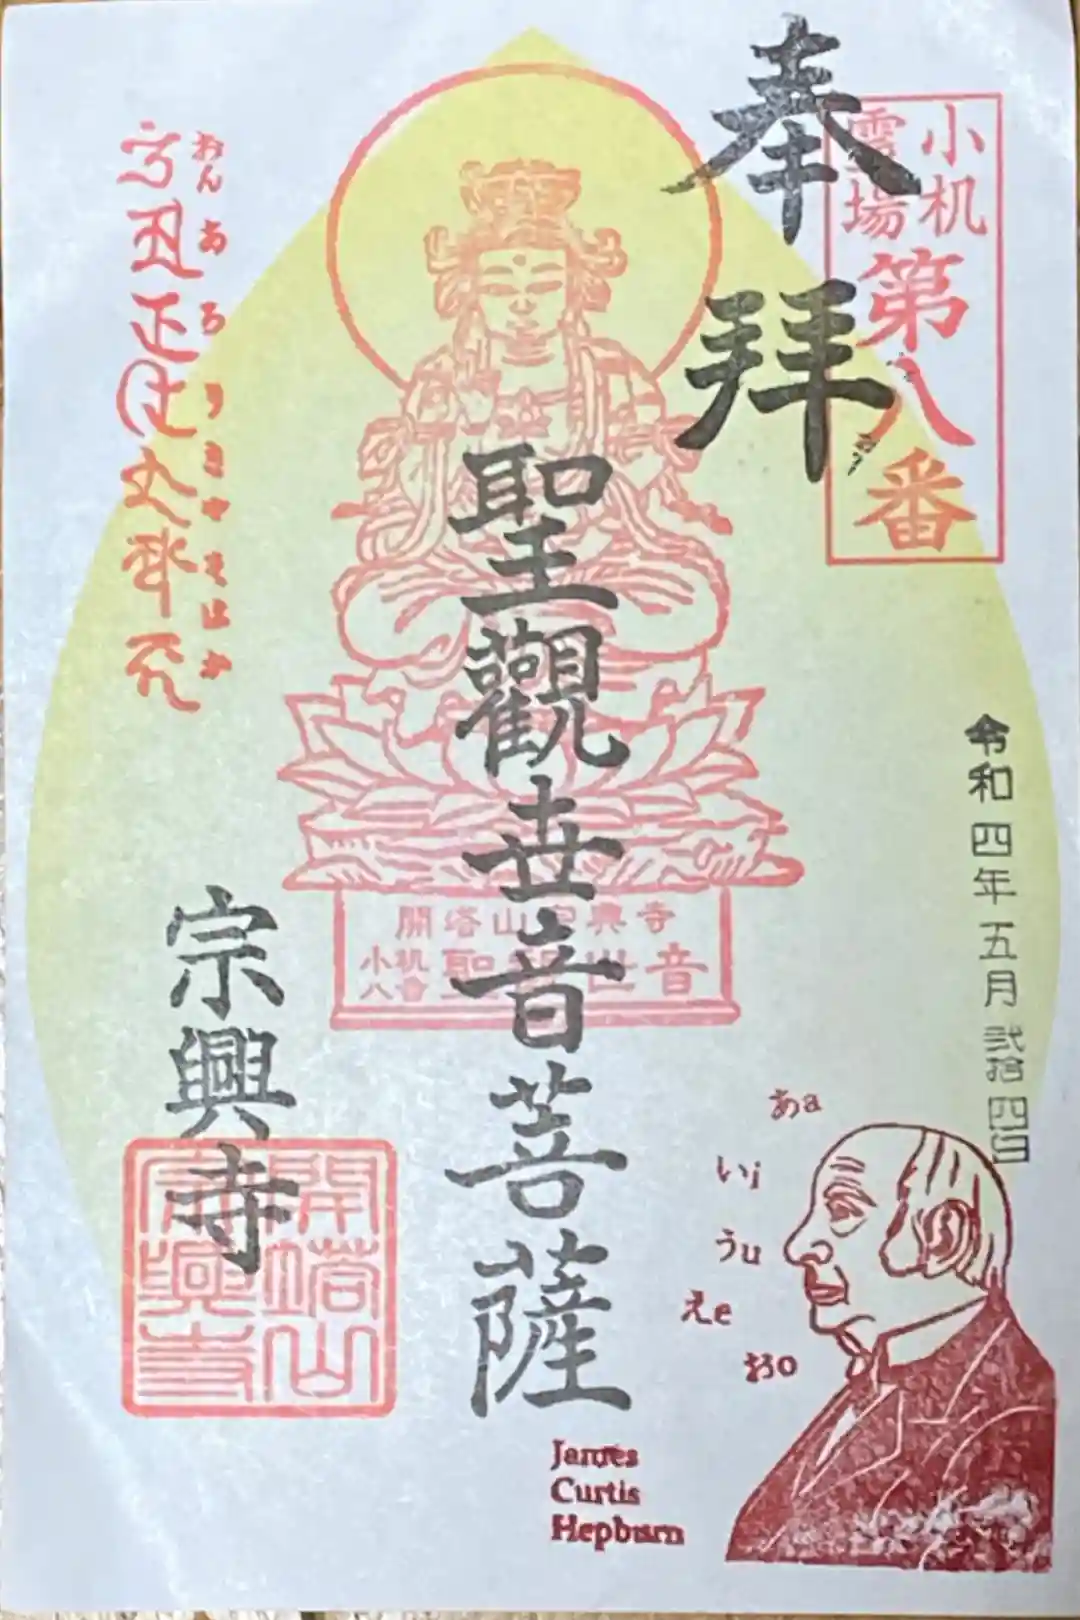 奉拝
小机
霊場
第八番
聖觀世音菩薩
おんあろりきやそはか
開塔山宗興寺
小机
八番
聖観世音
宗興寺
開塔山
宗興寺
令和四年五月弐拾四日
あa
いi
うu
えe
おo
James
Curtis
Hepburn